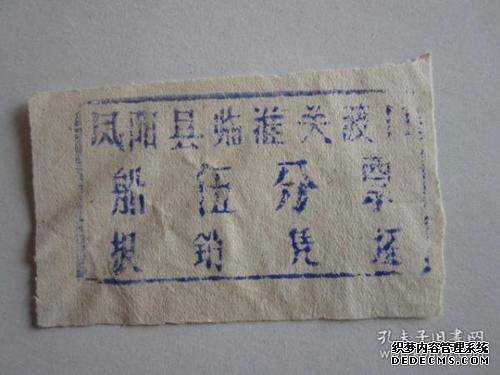 凤阳县临淮关渡口
船伍分票
报销凭证
孔夫子旧书网
织梦内容管理系统
DEDECMS.COM